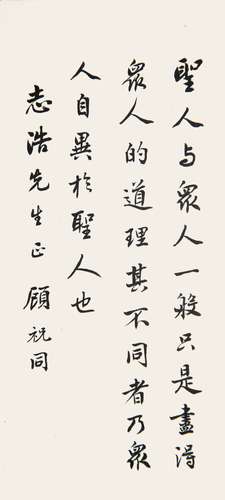 聖人与眾人一般只是盡得
眾人的道理其不同者乃眾
人自異於聖人也
志浩先生正 顧祝同